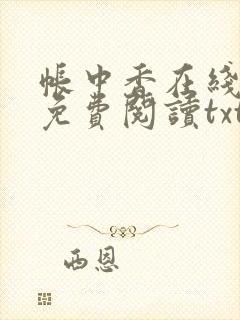 帳中香在綫
免費閱讀txt
西恩